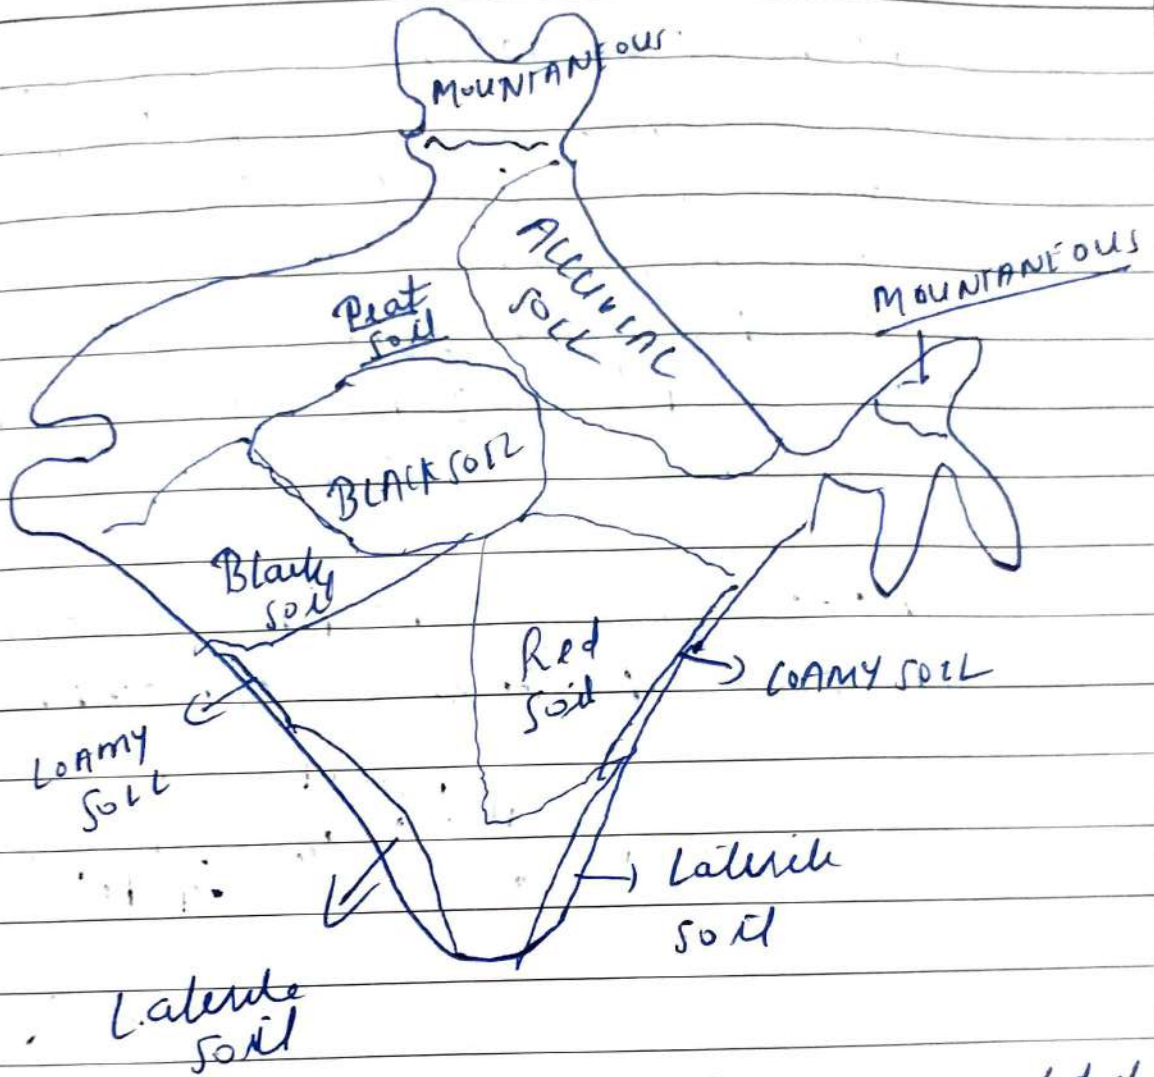 MOUNTANEOUS
ALLUVIAL
SOIL
MOUNTANEOUS
Peat
soil
BLACK SOIL
Black
soil
Red
soil
LOAMY SOIL
LOAMY
SOIL
Laterite
soil
Laterite
soil